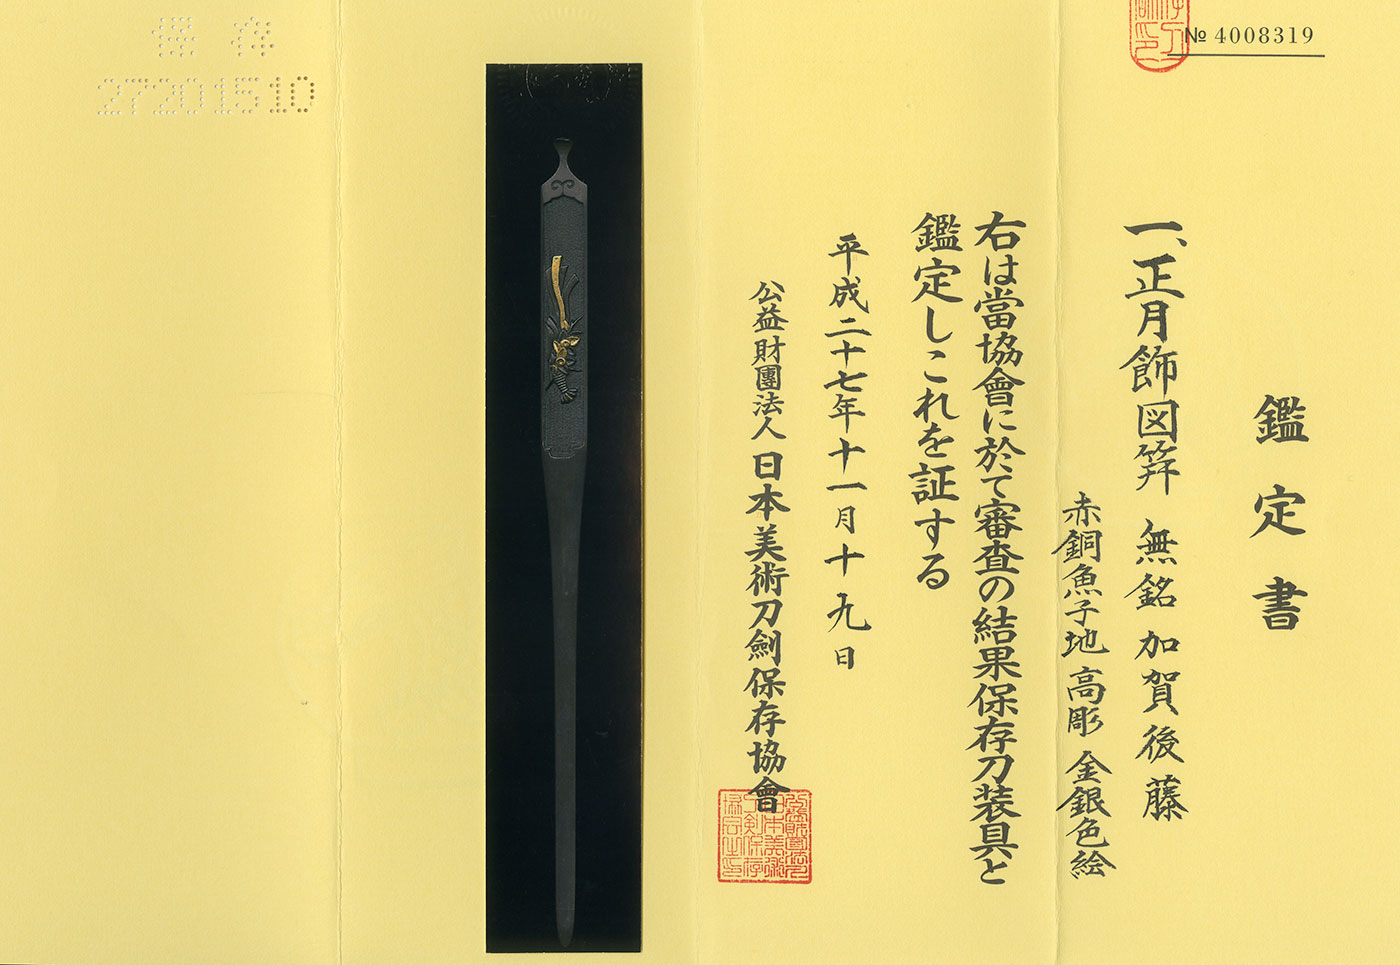 № 4008319
鑑定書
一、正月飾図笄 無銘 加賀後藤
赤銅魚子地 高彫 金銀色絵
右は當協會に於て審査の結果保存刀装具と
鑑定しこれを証する
平成二十七年十一月十九日
公益財團法人 日本美術刀劍保存協會
保存
27201510